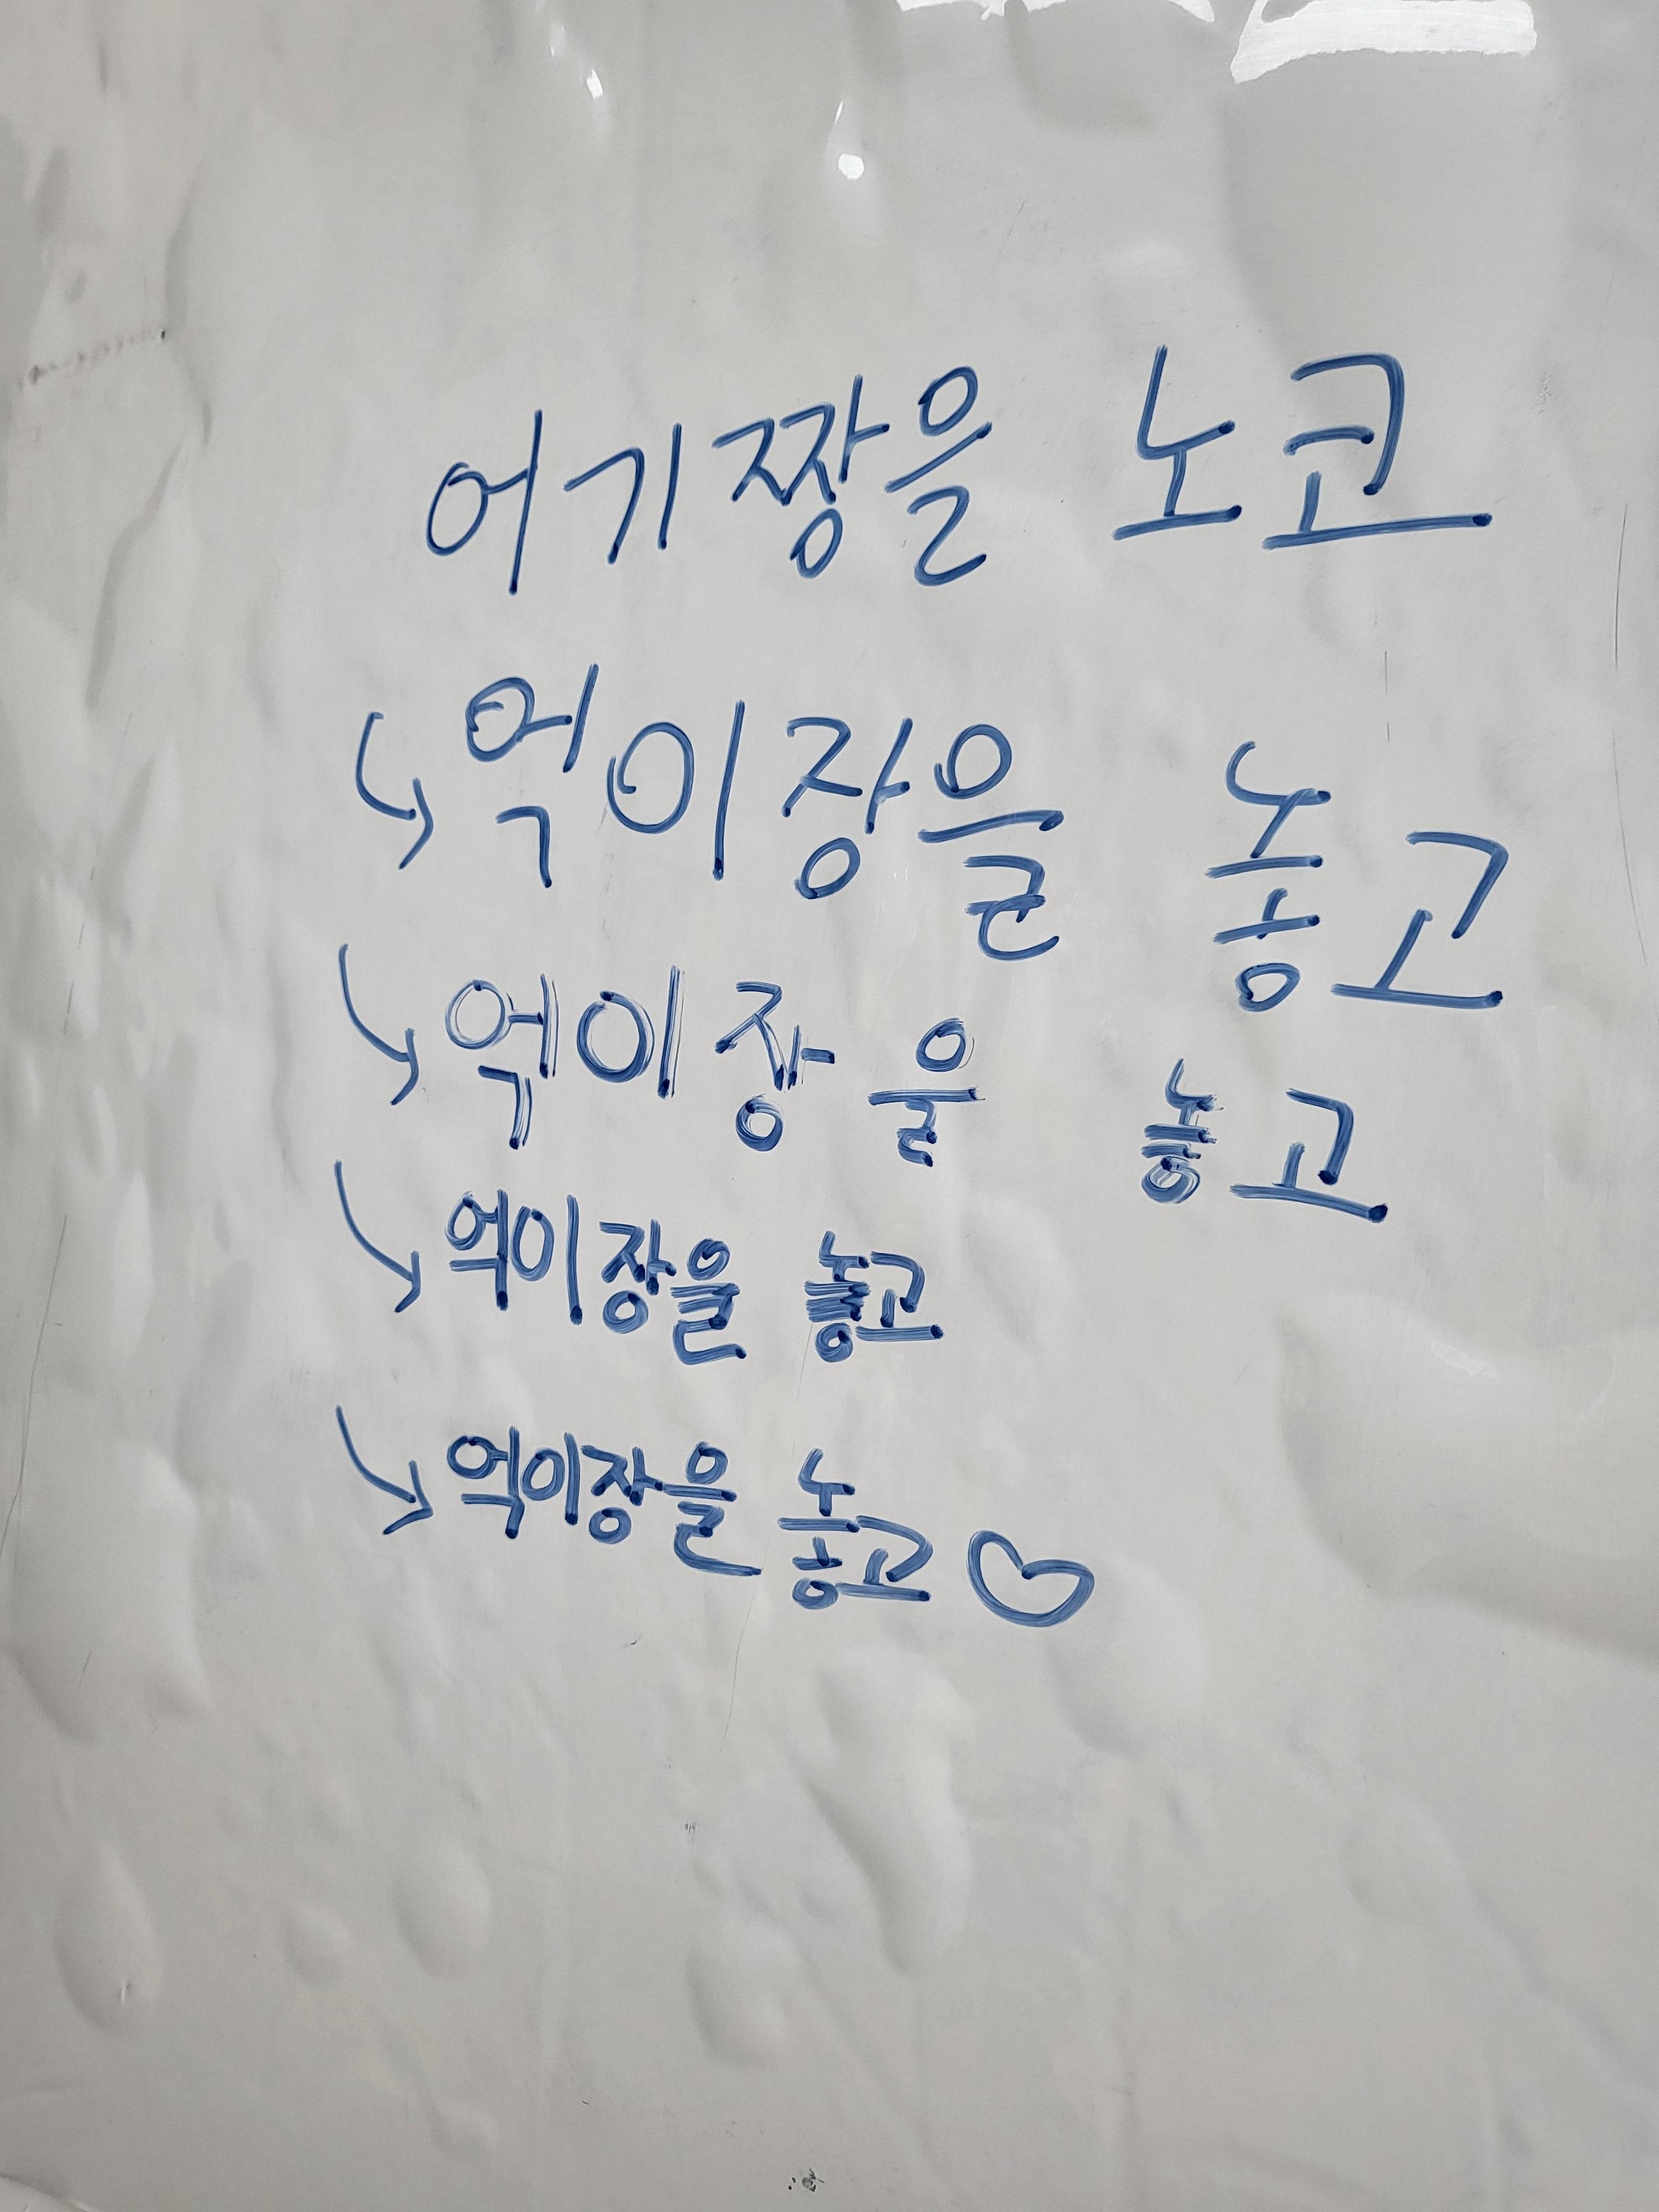 어기짱을 노코
↳ 억이장을 놓고
↳ 억이장을 놓고
↳ 억이장을 놓고
↳ 억이장을 놓고♡